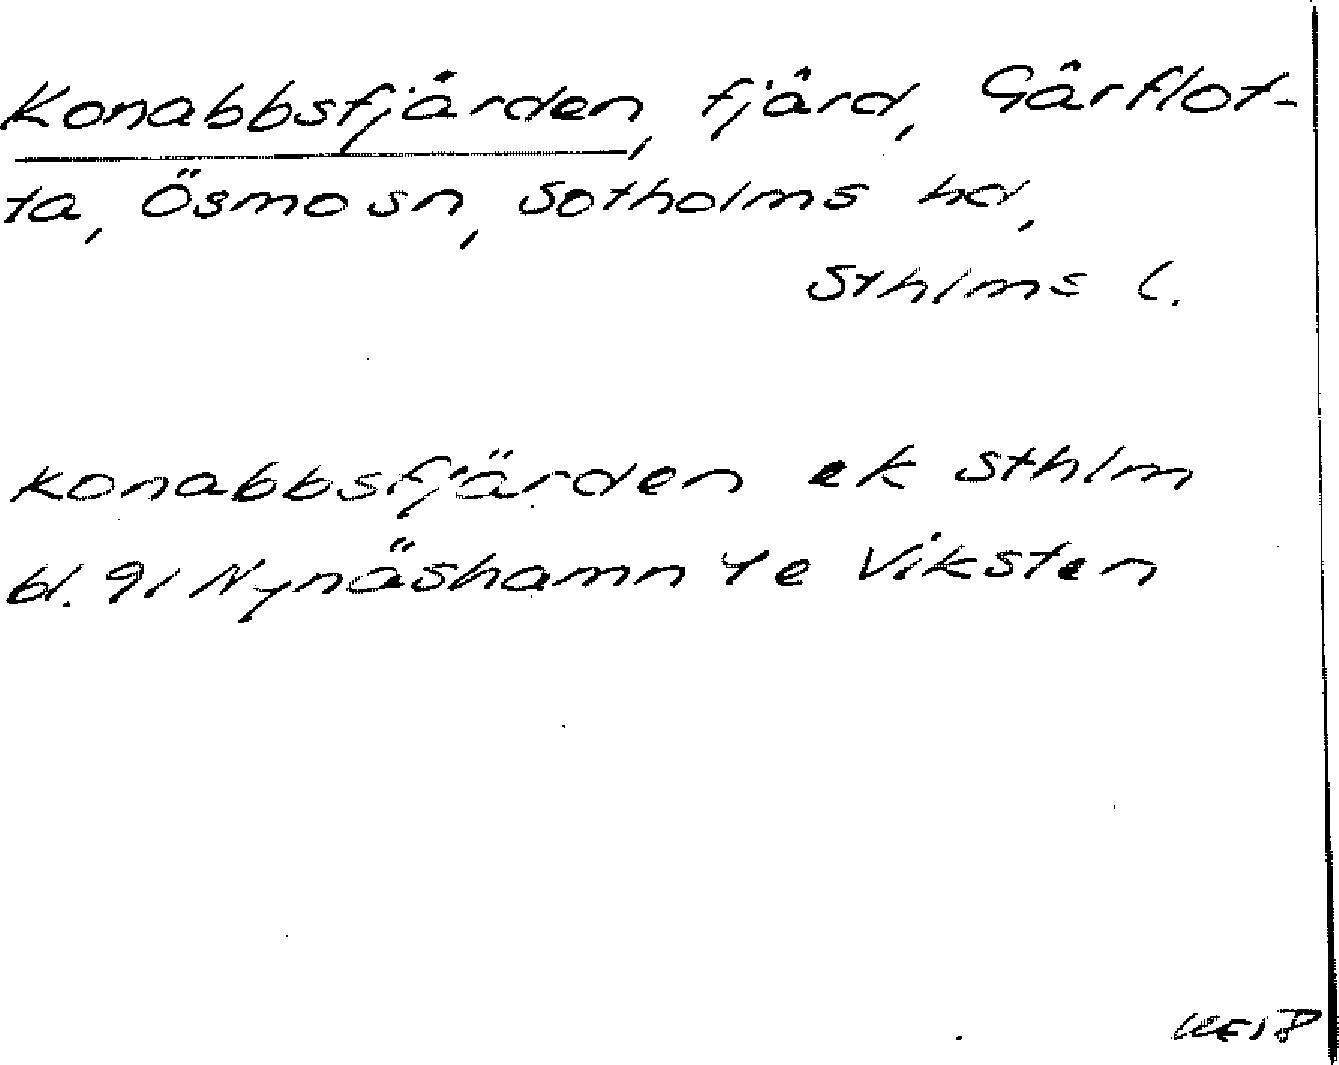 Konabbsfjärden, fjärd, Gårflot-
ta, Ösmo sn, Sotholms hd,
Sthlms l.
Konabbsfjärden ek Sthlm
bl. 91 Nynäshamn 4 e Viksten